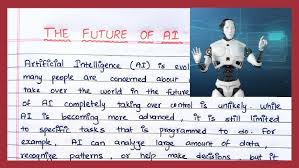 THE FUTURE OF AI
Artificial Intelligence (AI) is evol
many people are concerned about
take over the world in the future
of AI completely taking over control is unlikely. while
AI is becoming more advanced, it is still limited
to specific tasks that is programmed to do. For
example, AI can analyze large amount of data,
recognize patterns, or help make decisions, but it